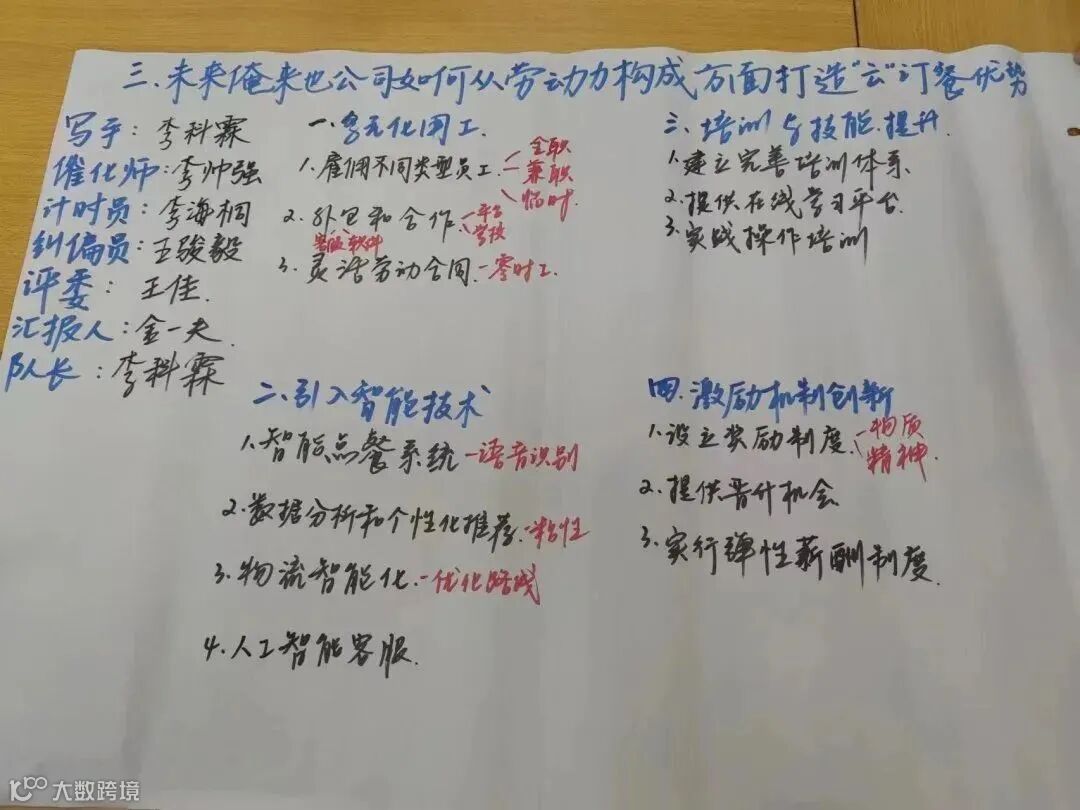 三、未来俺来也公司如何从劳动力构成方面打造"云"订餐优势
写手：李科霖
催化师：李帅强
计时员：李海桐
纠偏员：王骏毅
评委：王佳.
汇报人：金一夫
队长：李科霖
一.多元化用工.
1.雇佣不同类型员工 全职 兼职 临时.
2.外包和合作 平台 学校
客服 软件
3.灵活劳动合同-零时工
二.引入智能技术
1.智能点餐系统-语音识别
2.数据分析和个性化推荐.-粘性
3.物流智能化-优化路线
4.人工智能客服.
三.培训与技能提升
1.建立完善培训体系
2.提供在线学习平台.
3.实战操作培训
四.激励机制创新
1.设立奖励制度 物质 精神.
2.提供晋升机会
3.实行弹性薪酬制度.
大数跨境